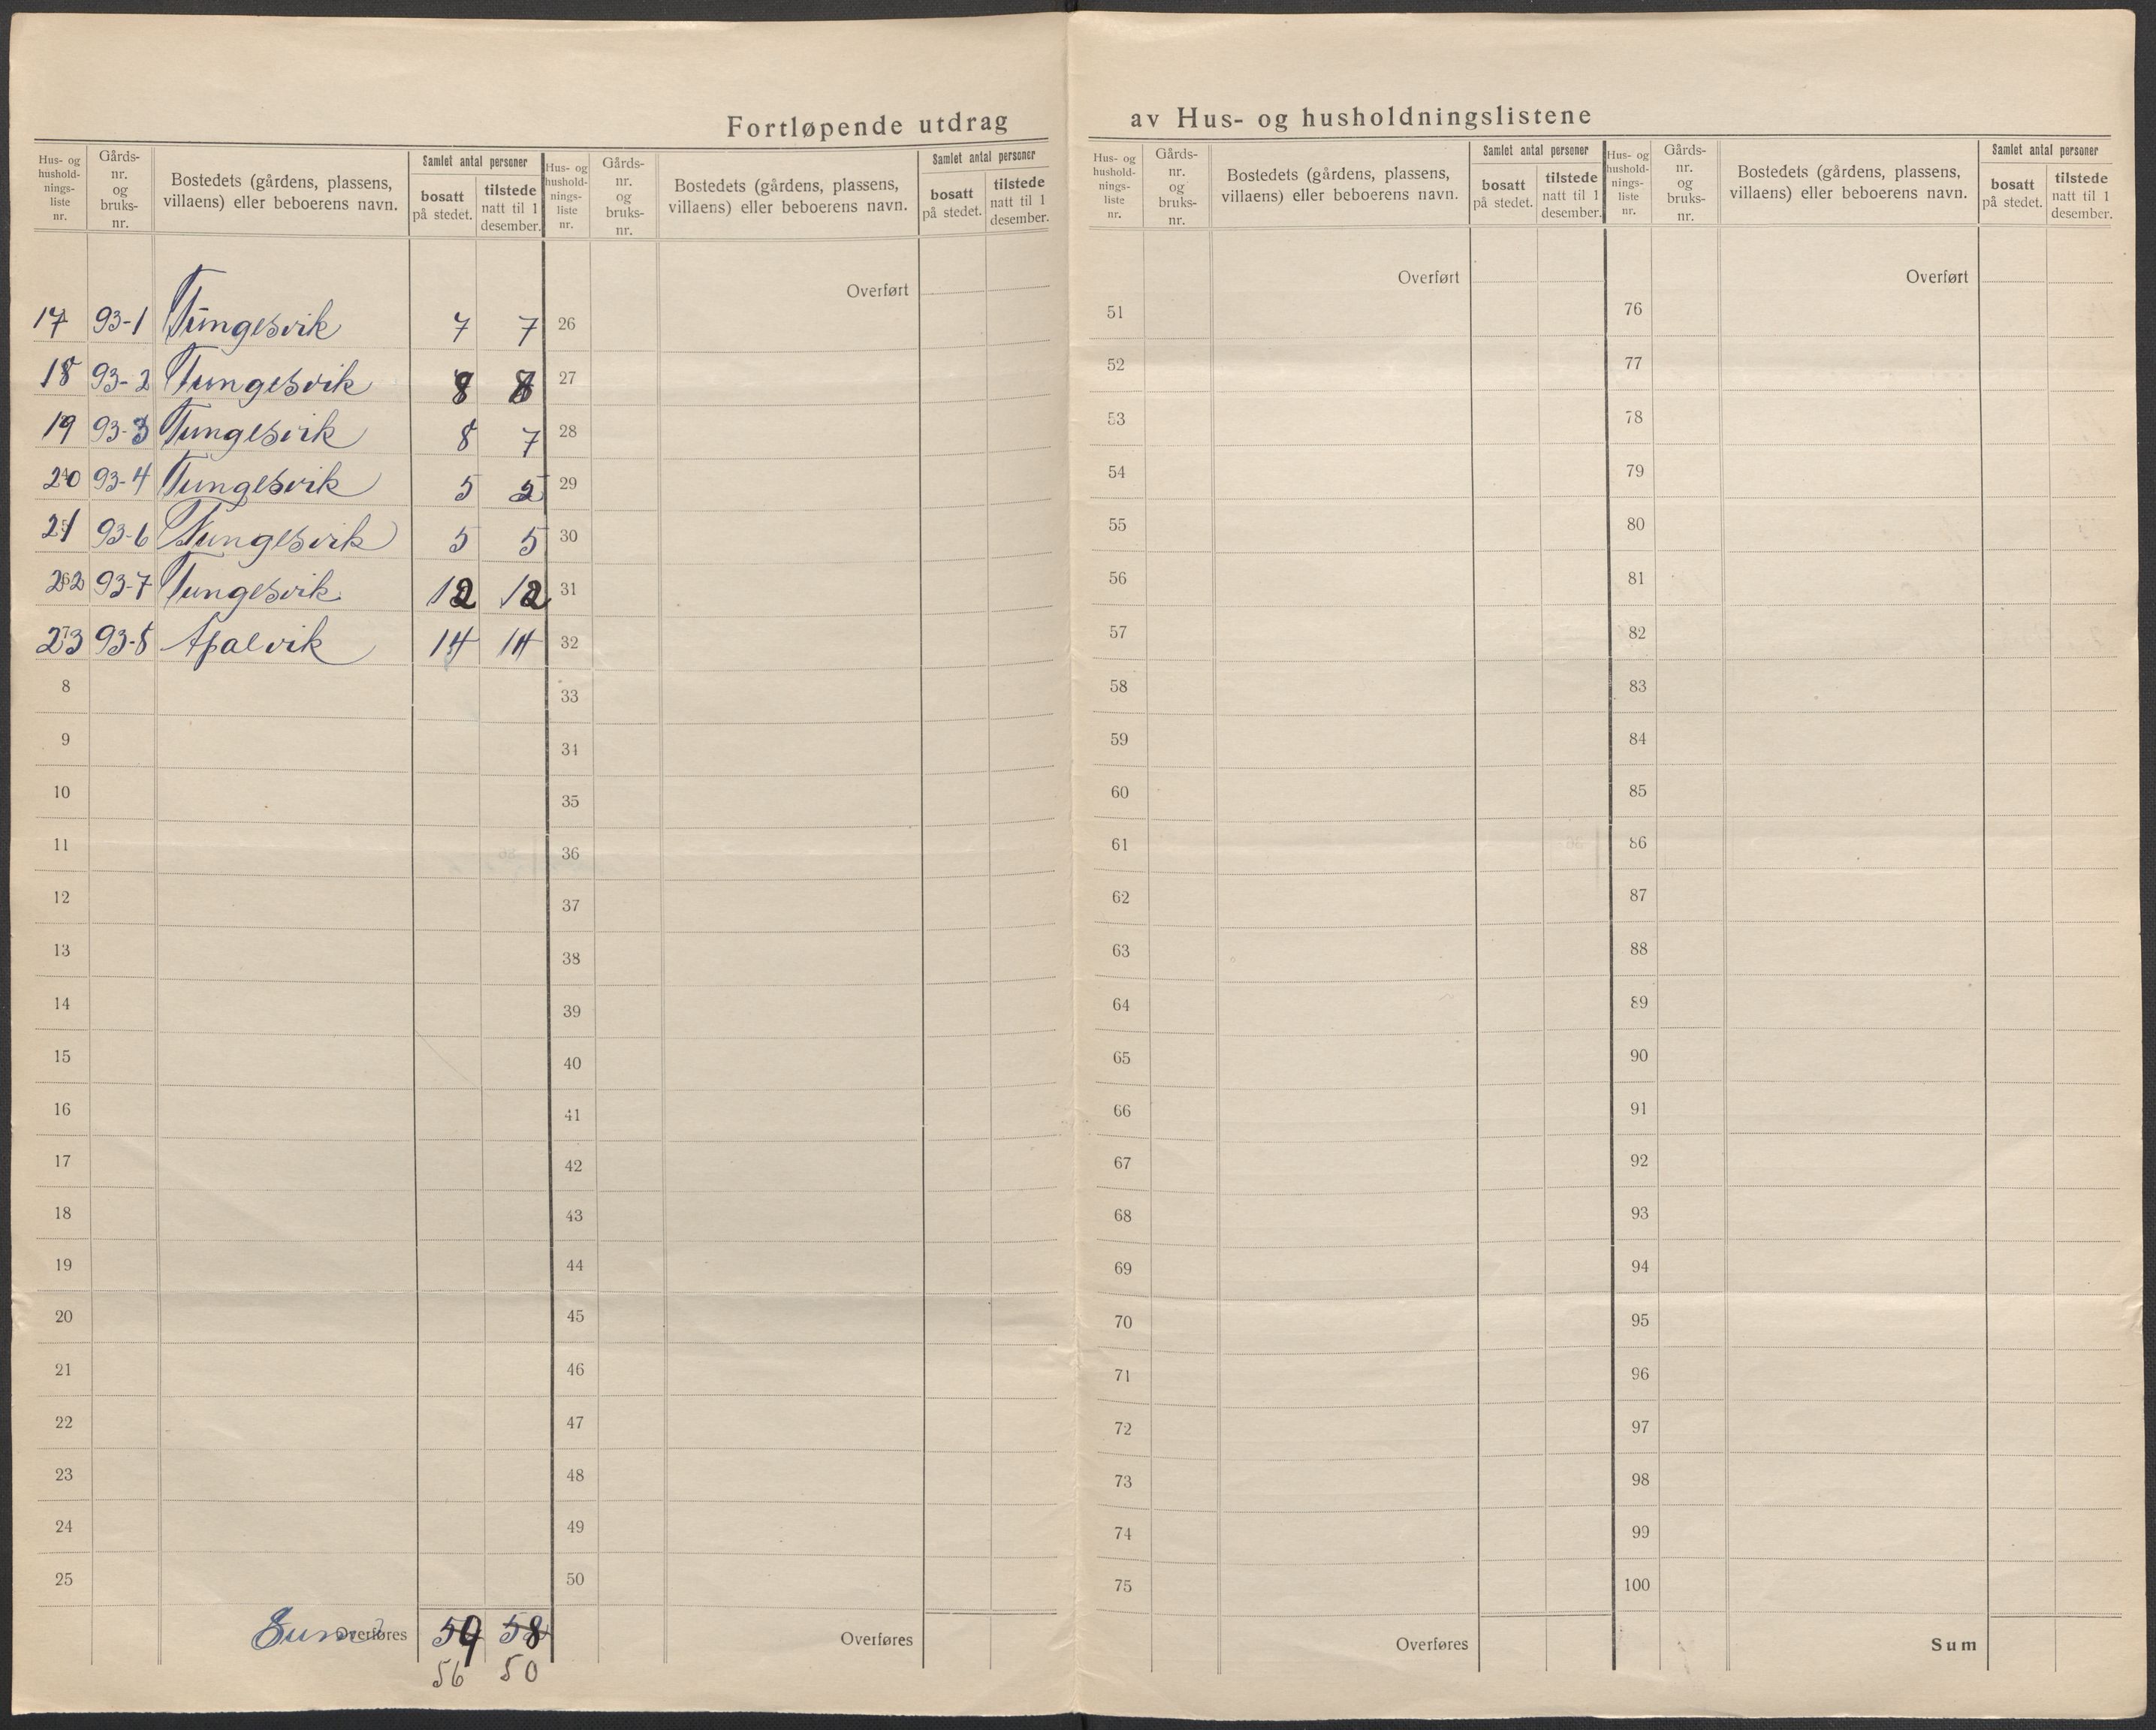 Fortløpende utdrag av Hus- og husholdningslistene
Hus- og hushold-nings-liste nr. | Gårds-nr. og bruks-nr. | Bostedets (gårdens, plassens, villaens) eller beboerens navn. | Samlet antal personer | bosatt på stedet. | tilstede natt til 1 desember.
17 93-1 Tungesvik 7 7
18 93-2 Tungesvik 8 8
19 93-3 Tungesvik 8 7
20 93-4 Tungesvik 5 5
21 93-6 Tungesvik 5 5
22 93-7 Tungesvik 12 12
23 93-8 Apalvik 14 14
8
9
10
11
12
13
14
15
16
17
18
19
20
21
22
23
24
25
Sum Overføres 59 58
56 50
Hus- og hushold-nings-liste nr. | Gårds-nr. og bruks-nr. | Bostedets (gårdens, plassens, villaens) eller beboerens navn. | Samlet antal personer | bosatt på stedet. | tilstede natt til 1 desember.
Overført
26
27
28
29
30
31
32
33
34
35
36
37
38
39
40
41
42
43
44
45
46
47
48
49
50
Overføres
Hus- og hushold-nings-liste nr. | Gårds-nr. og bruks-nr. | Bostedets (gårdens, plassens, villaens) eller beboerens navn. | Samlet antal personer | bosatt på stedet. | tilstede natt til 1 desember.
Overført
51
52
53
54
55
56
57
58
59
60
61
62
63
64
65
66
67
68
69
70
71
72
73
74
75
Overføres
Hus- og hushold-nings-liste nr. | Gårds-nr. og bruks-nr. | Bostedets (gårdens, plassens, villaens) eller beboerens navn. | Samlet antal personer | bosatt på stedet. | tilstede natt til 1 desember.
Overført
76
77
78
79
80
81
82
83
84
85
86
87
88
89
90
91
92
93
94
95
96
97
98
99
100
Sum